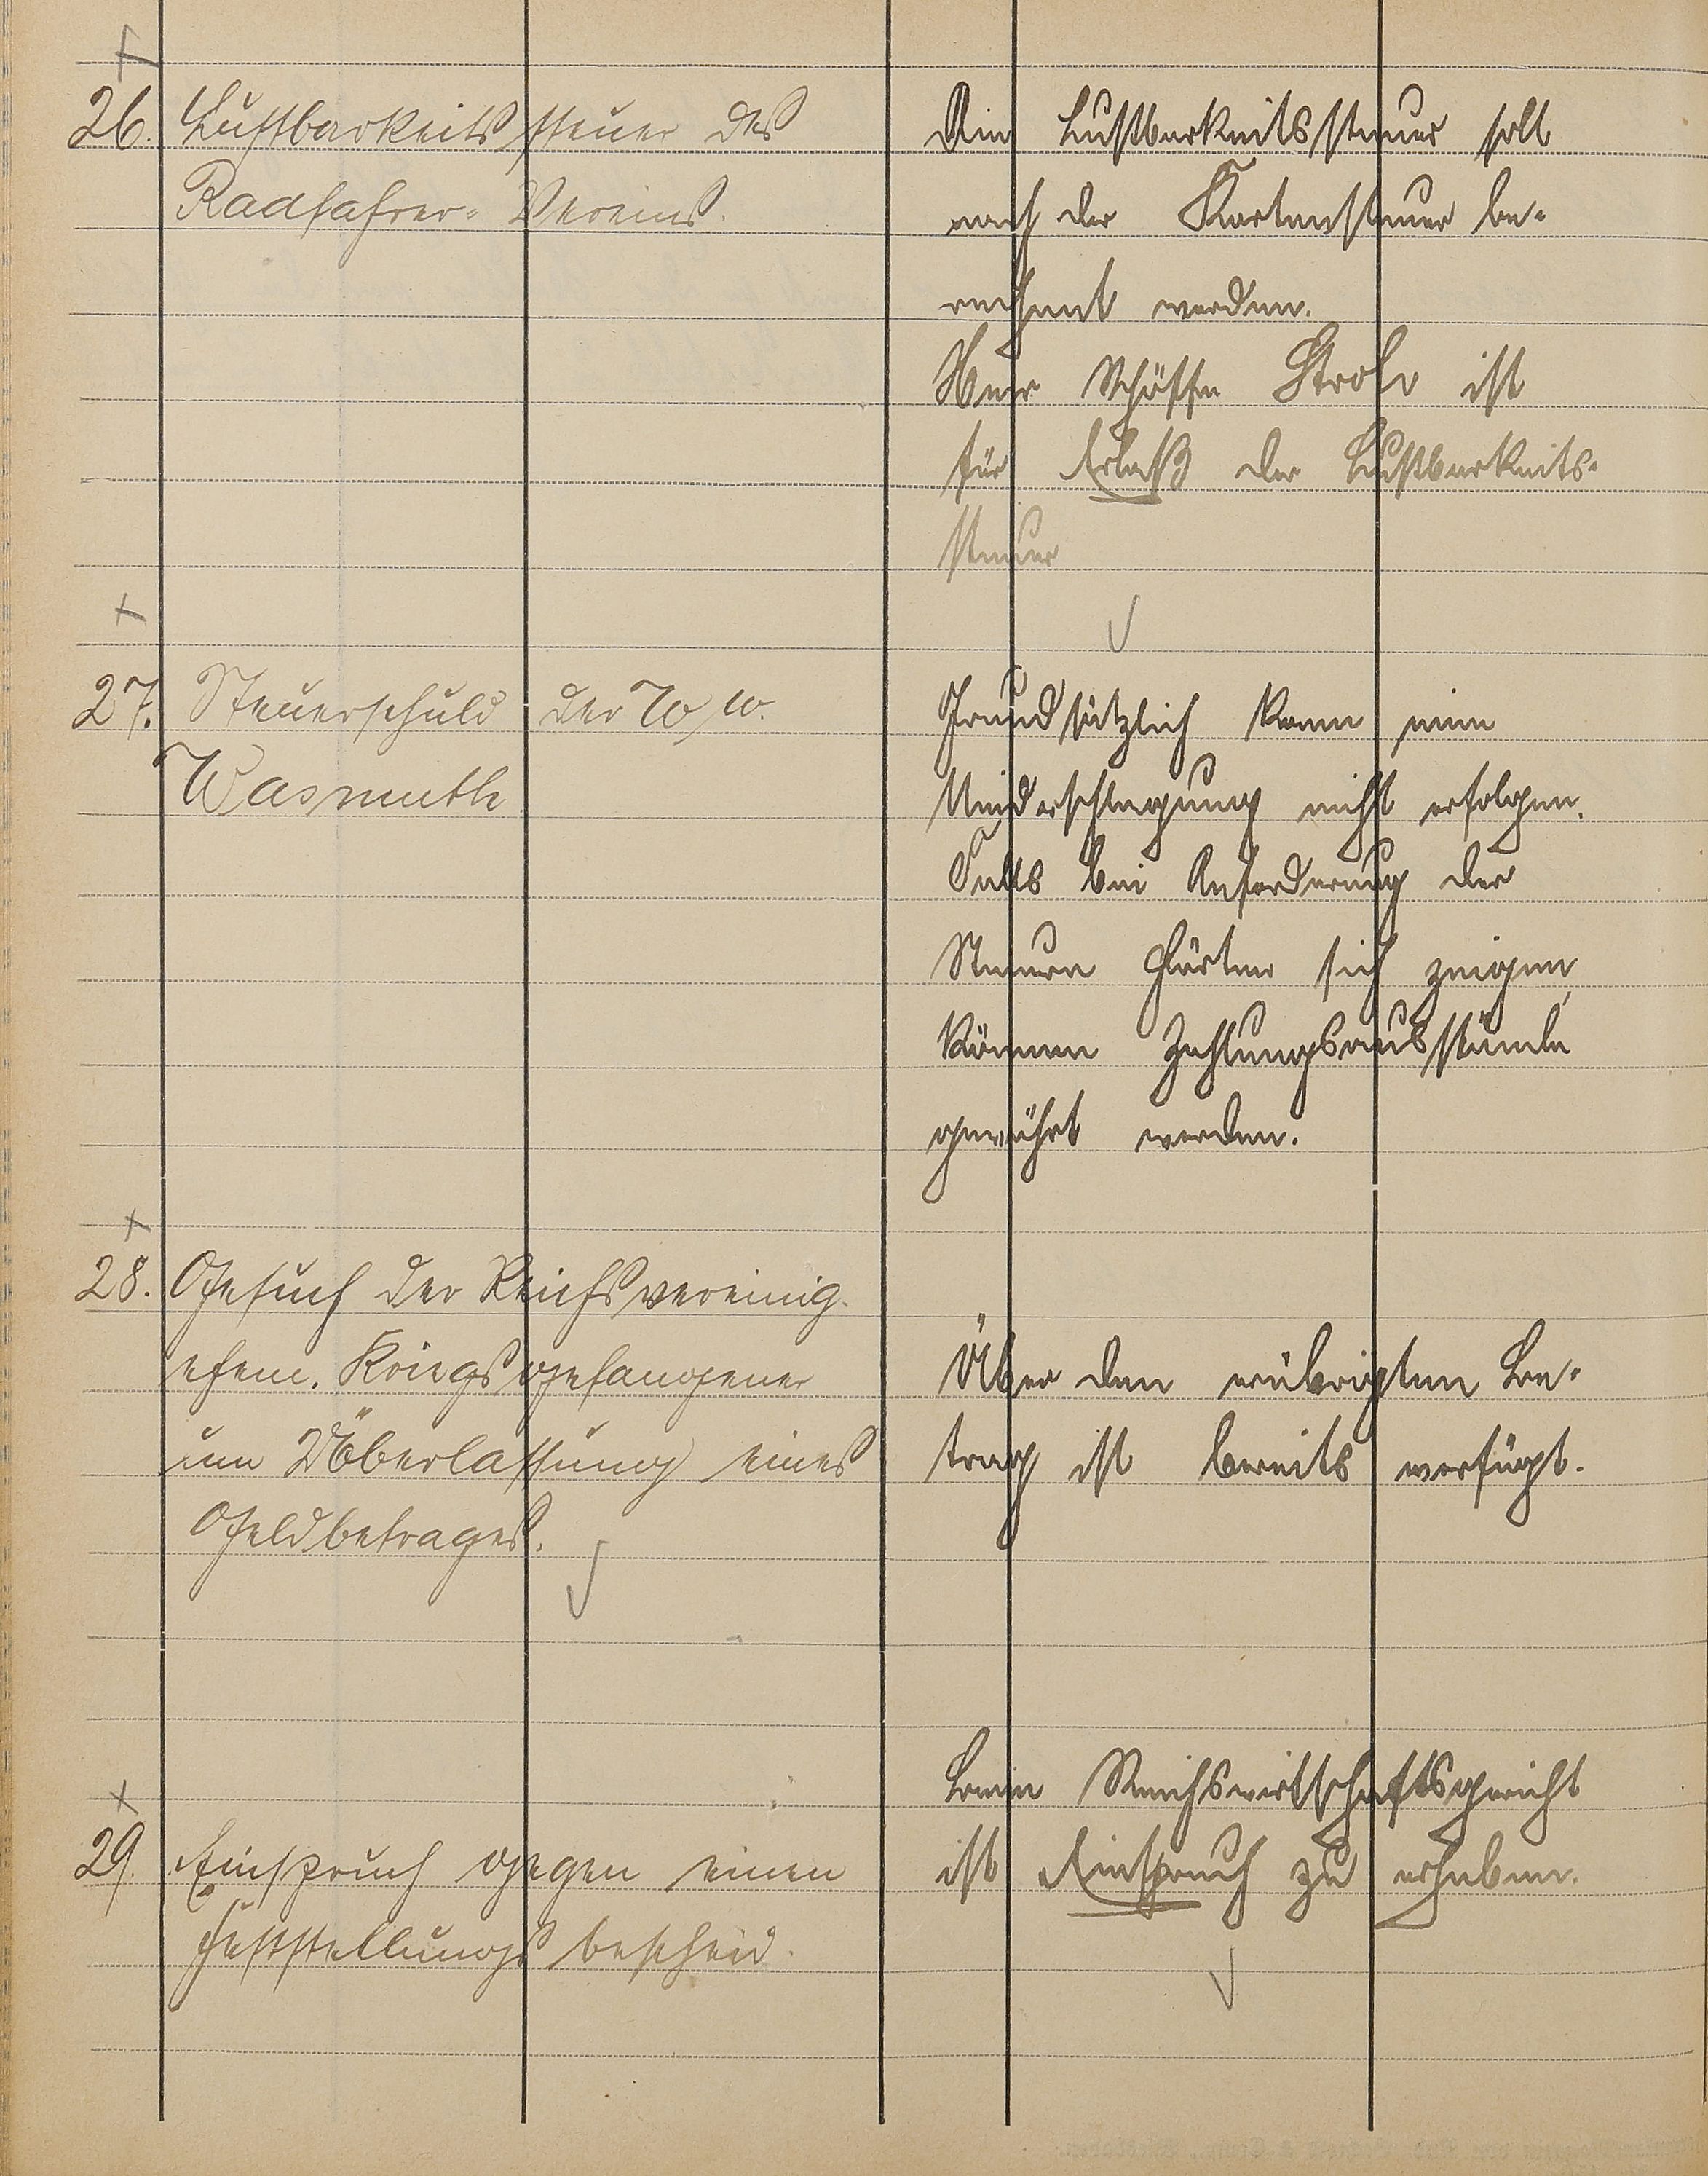 26. Lustbarkeitssteuer des
Radfahrer-Vereins.
Die Lustbarkeitssteuer soll
nach der Kartensteuer be-
rechnet werden.
Herr Schöffe Stroh ist
für Erlaß der Lustbarkeits-
steuer
27. Steuerschuld der Ww.
Wasmuth
Grundsätzlich kann eine
Niederschlagung nicht erfolgen.
Falls bei Anforderung der
Steuern Härten sich zeigen,
können Zahlungsausstände
gewährt werden.
28. Gesuch der Reichsvereinig.
ehem. Kriegsgefangener
um Überlassung eines
Geldbetrages.
Über den erübrigten Be-
trag ist bereits verfügt.
29. Einspruch gegen einen
Feststellungsbescheid.
Beim Reichswirtschaftsgericht
ist Einspruch zu erheben.